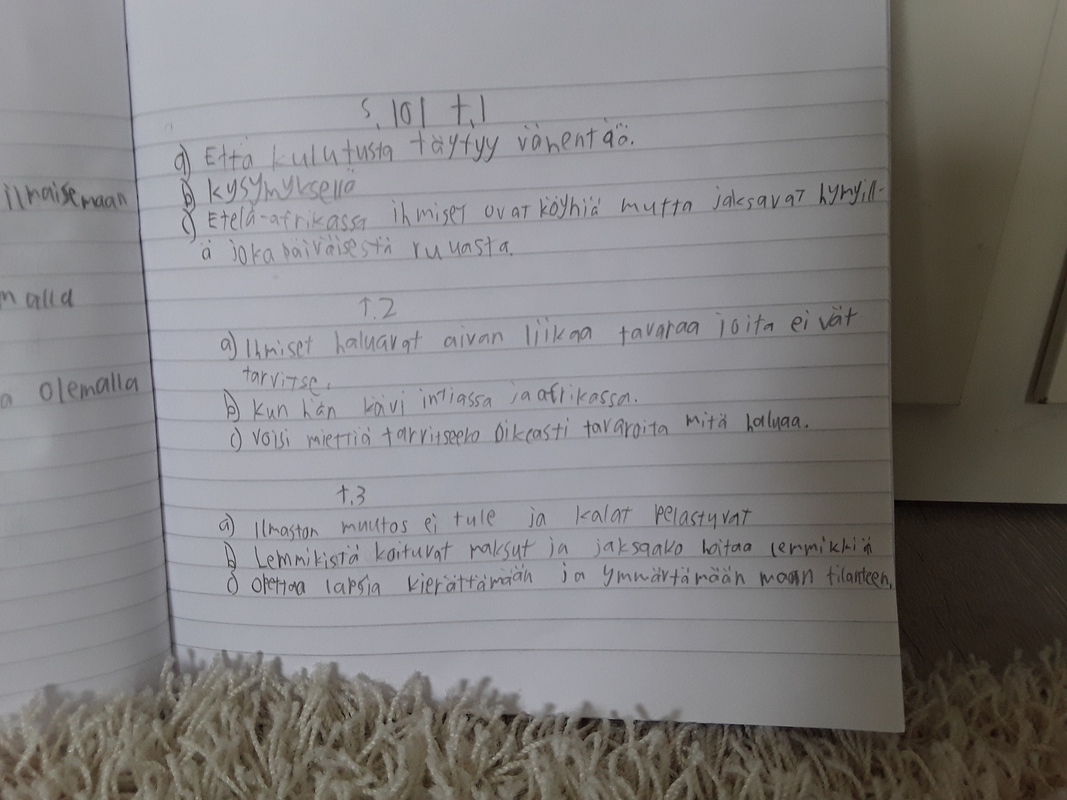 ilmaisemaan
malla
a olemalla
s. 101 t.1
a) Että kulutusta täytyy vähentää.
b) kysymyksellä
c) Etelä-afrikassa ihmiset ovat köyhiä mutta jaksavat hymyill-
ä joka päiväisestä ruuasta.
T.2
a) Ihmiset haluavat aivan liikaa tavaraa joita eivät
tarvitse.
b) kun hän kävi intiassa ja afrikassa.
c) voisi miettiä tarvitseeko oikeasti tavaroita mitä haluaa.
t.3
a) Ilmaston muutos ei tule ja kalat pelastuvat
b) Lemmikistä koituvat maksut ja jaksaako hoitaa lemmikkiä
c) opettaa lapsia kierättämään ja ymmärtämään maan tilanteen.